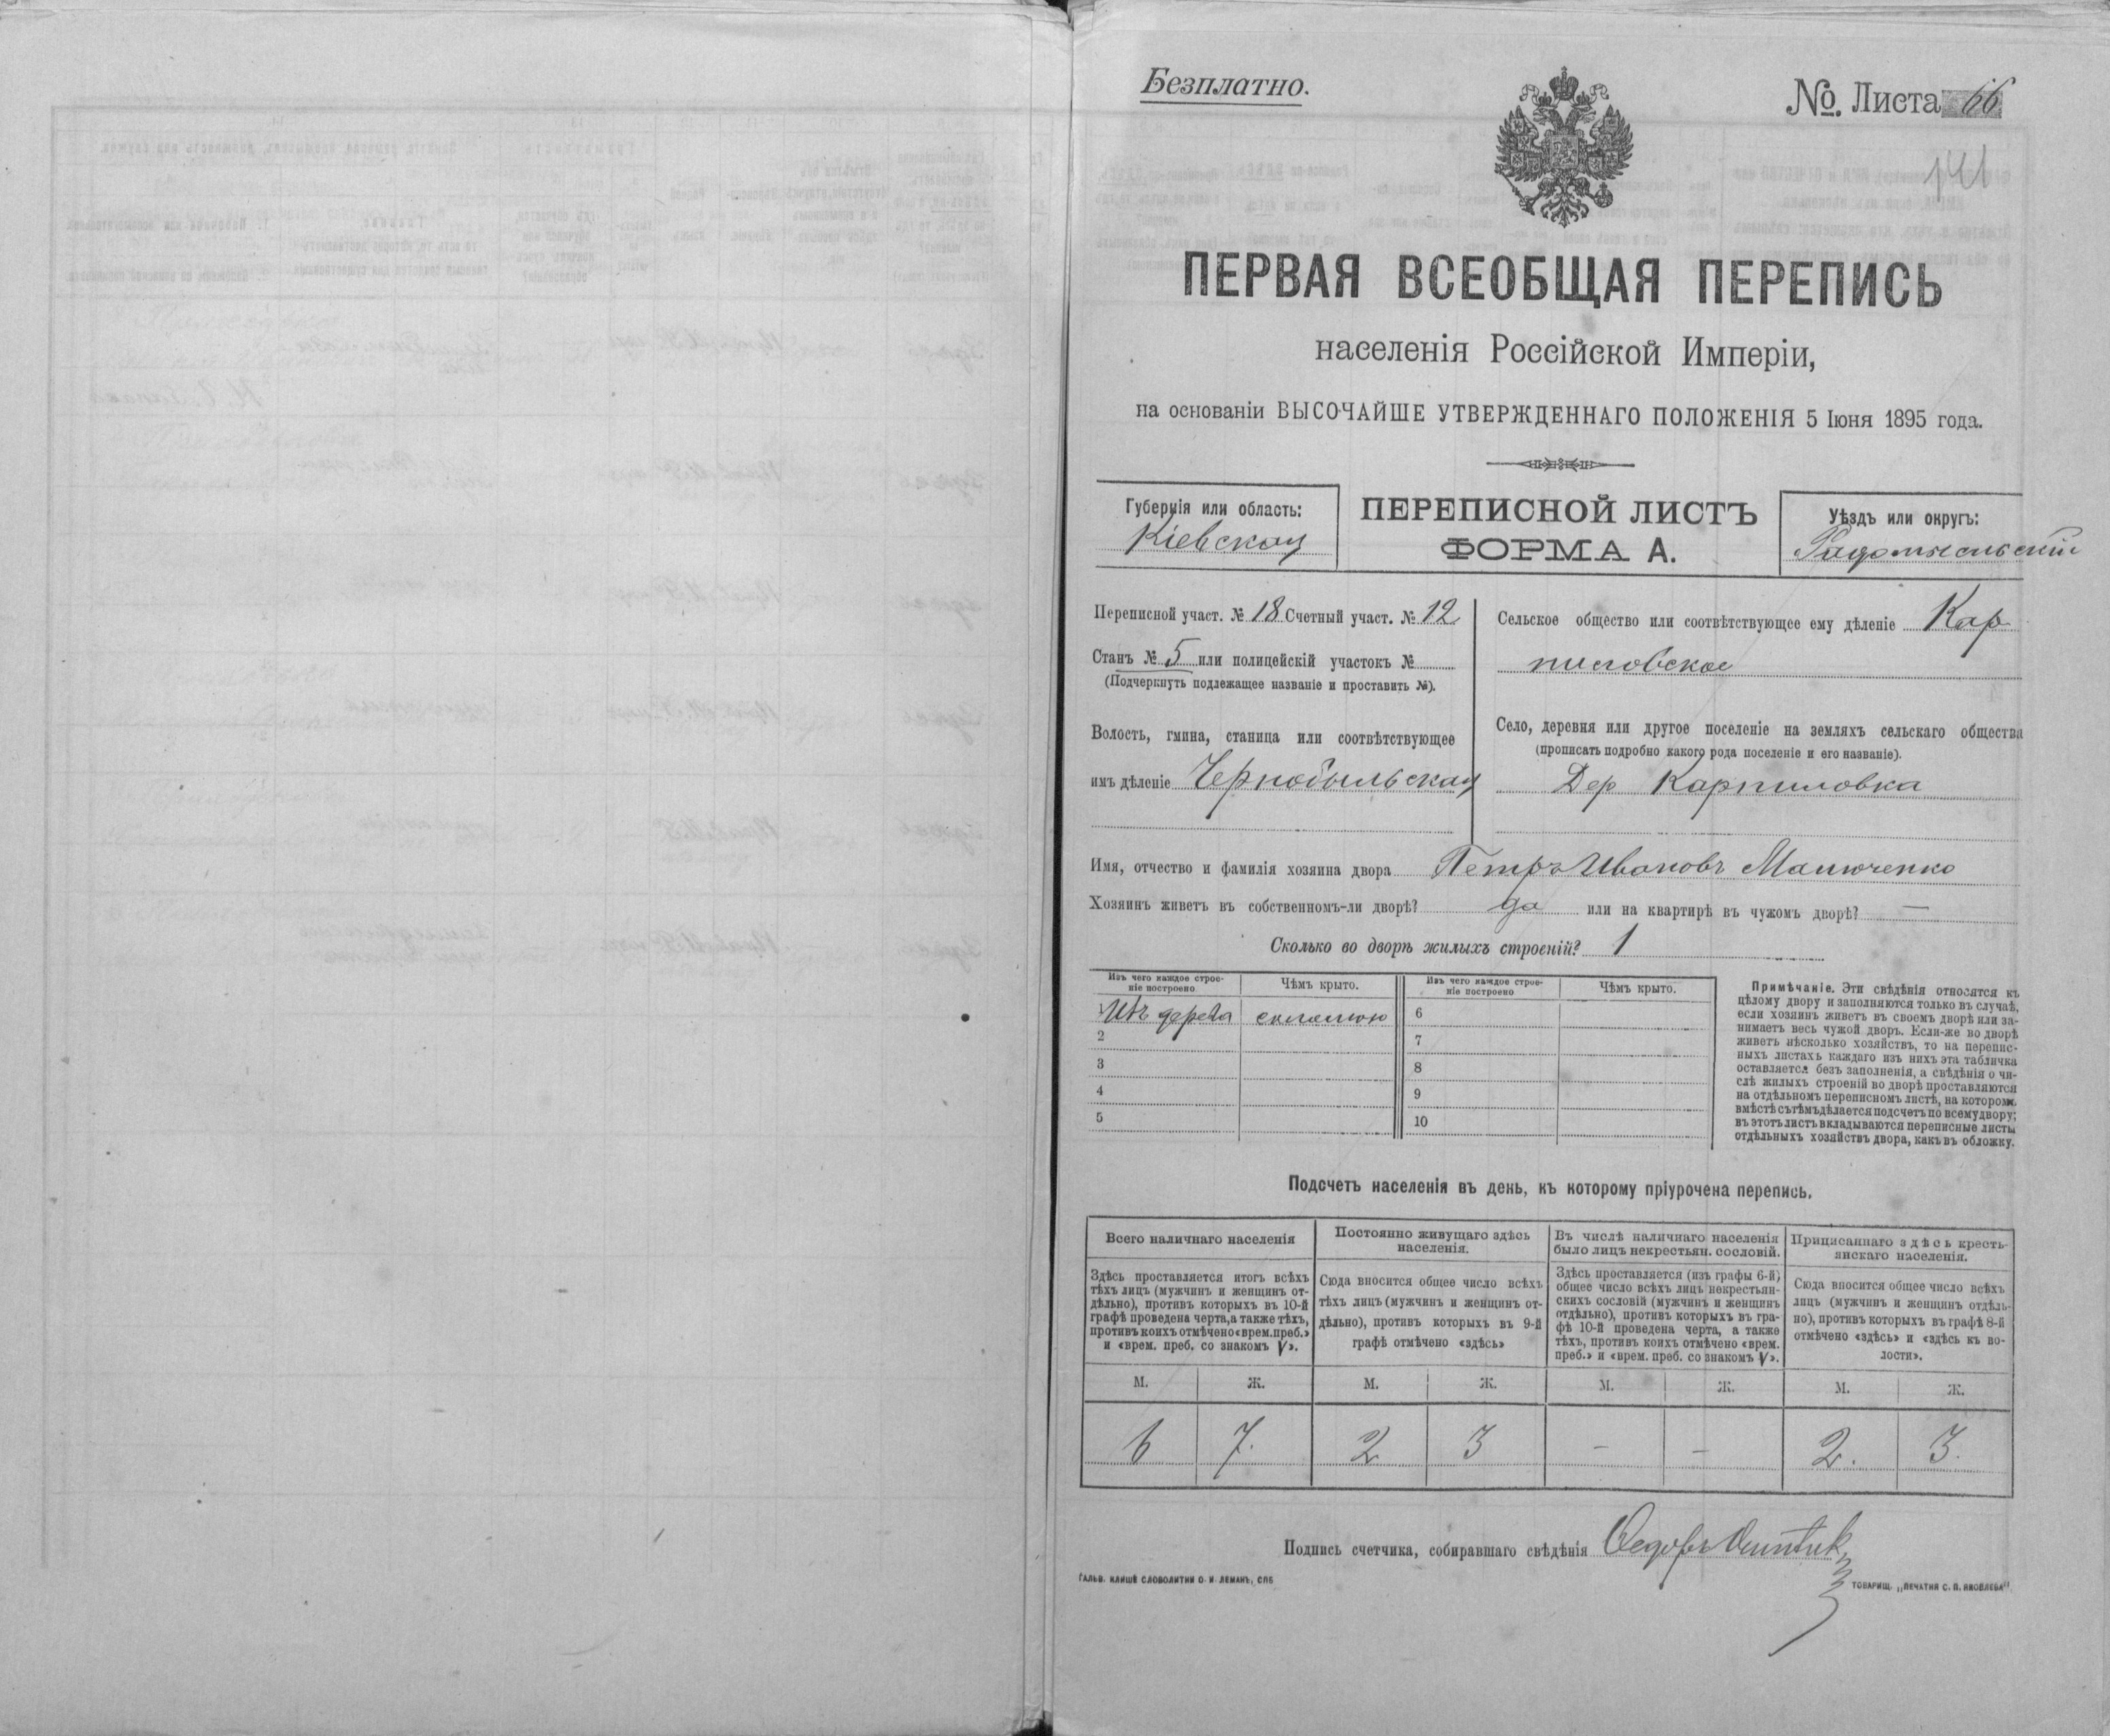 Безплатно.
№ Листа 66
141
ПЕРВАЯ ВСЕОБЩАЯ ПЕРЕПИСЬ
населенія Россійской Имперіи,
на основаніи ВЫСОЧАЙШЕ УТВЕРЖДЕННАГО ПОЛОЖЕНІЯ 5 Іюня 1895 года.
Губернія или область:
Кіевская
ПЕРЕПИСНОЙ ЛИСТЪ
ФОРМА А.
Уѣздъ или округъ:
Радомысльскій
Переписной участ. № 18 Счетный участ. № 12
Станъ № 5 или полицейскій участокъ №
(Подчеркнуть подлежащее названіе и проставить №).
Волость, гмина, станица или соотвѣтствующее
имъ дѣленіе Чернобыльская
Сельское общество или соотвѣтствующее ему дѣленіе Кар
пиловское
Село, деревня или другое поселеніе на земляхъ сельскаго общества
(прописать подробно какого рода поселеніе и его названіе).
Дер Карпиловка
Имя, отчество и фамилія хозяина двора Петръ Ивановъ
Хозяинъ живетъ въ собственномъ-ли дворѣ? да или на квартирѣ въ чужомъ дворѣ? —
Сколько во дворѣ жилыхъ строеній? 1
Изъ чего каждое строе-
ніе построено
Чѣмъ крыто.
Изъ чего каждое строе-
ніе построено
Чѣмъ крыто.
Изъ дерева соломою
2
3
4
5
6
7
8
9
10
Примѣчаніе. Эти свѣдѣнія относятся къ
цѣлому двору и заполняются только въ случаѣ,
если хозяинъ живетъ въ своемъ дворѣ или за-
нимаетъ весь чужой дворъ. Если-же во дворѣ
живетъ нѣсколько хозяйствъ, то на перепис-
ныхъ листахъ каждаго изъ нихъ эта табличка
оставляется безъ заполненія, а свѣдѣнія о чи-
слѣ жилыхъ строеній во дворѣ проставляются
на отдѣльномъ переписномъ листѣ, на которомъ
вмѣстѣ съ тѣмъ дѣлается подсчетъ по всему двору;
въ этотъ листъ вкладываются переписные листы
отдѣльныхъ хозяйствъ двора, какъ въ обложку.
Подсчетъ населенія въ день, къ которому пріурочена перепись.
Всего наличнаго населенія
Постоянно живущаго здѣсь
населенія.
Въ числѣ наличнаго населенія
было лицъ некрестьян. сословій.
Приписаннаго здѣсь кресть-
янскаго населенія.
Здѣсь проставляется итогъ всѣхъ
тѣхъ лицъ (мужчинъ и женщинъ от-
дѣльно), противъ которыхъ въ 10-й
графѣ проведена черта, а также тѣхъ,
противъ коихъ отмѣчено «врем. преб.»
и «врем. преб. со знакомъ V».
Сюда вносится общее число всѣхъ
тѣхъ лицъ (мужчинъ и женщинъ от-
дѣльно), противъ которыхъ въ 9-й
графѣ отмѣчено «здѣсь»
Здѣсь проставляется (изъ графы 6-й)
общее число всѣхъ лицъ некрестьян-
скихъ сословій (мужчинъ и женщинъ
отдѣльно), противъ которыхъ въ гра-
фѣ 10-й проведена черта, а также
тѣхъ, противъ коихъ отмѣчено «врем.
преб.» и «врем. преб. со знакомъ V».
Сюда вносится общее число всѣхъ
лицъ (мужчинъ и женщинъ отдѣль-
но), противъ которыхъ въ графѣ 8-й
отмѣчено «здѣсь» и «здѣсь къ во-
лости».
М. Ж. М. Ж. М. Ж. М. Ж.
6 7. 2 3 – – 2. 3.
Подпись счетчика, собиравшаго свѣдѣнія Ѳедоръ
ГАЛЬВ. КЛИШЕ СЛОВОЛИТНИ О. И. ЛЕМАНЪ, СПБ
ТОВАРИЩ. „ПЕЧАТНЯ С. П. ЯКОВЛЕВА“